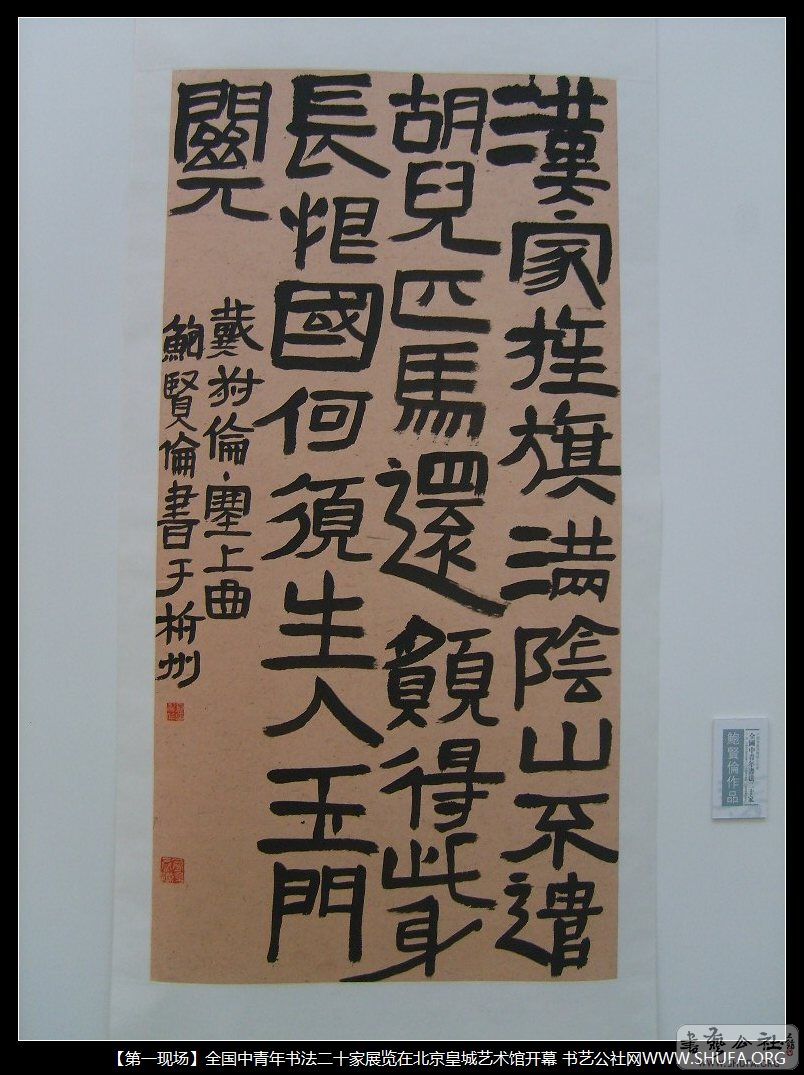 漢家旌旗满陰山不遣
胡兒匹馬還願得此身
長报國何須生入玉門
關
戴叔倫塞上曲
鮑賢倫書于杭州
全國中青年書法二十家
鮑賢倫作品
書藝公社
WWW.SHUFA.ORG
【第一现场】全国中青年书法二十家展览在北京皇城艺术馆开幕 书艺公社网WWW.SHUFA.ORG